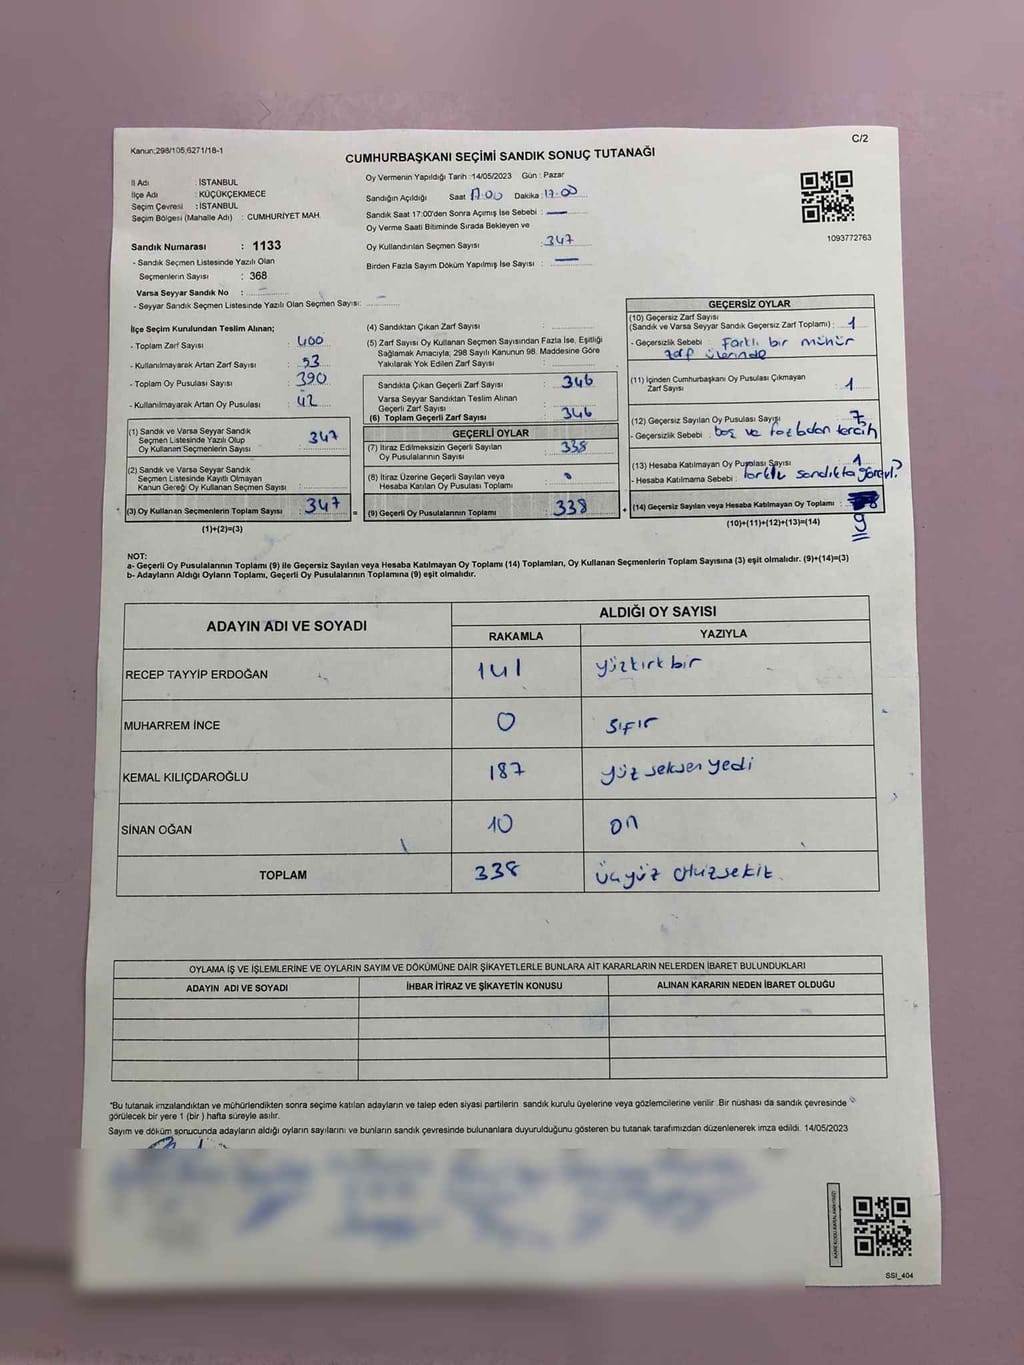 Kanun;298/105;6271/18-1
C/2
CUMHURBAŞKANI SEÇİMİ SANDIK SONUÇ TUTANAĞI
İl Adı : İSTANBUL
İlçe Adı : KÜÇÜKÇEKMECE
Seçim Çevresi : İSTANBUL
Seçim Bölgesi (Mahalle Adı) : CUMHURİYET MAH.
Sandık Numarası : 1133
- Sandık Seçmen Listesinde Yazılı Olan
Seçmenlerin Sayısı : 368
Varsa Seyyar Sandık No :
- Seyyar Sandık Seçmen Listesinde Yazılı Olan Seçmen Sayısı:
Oy Vermenin Yapıldığı Tarih :14/05/2023 Gün : Pazar
Sandığın Açıldığı Saat 17:00 Dakika : 17:00
Sandık Saat 17:00'den Sonra Açımış İse Sebebi : —
Oy Verme Saati Bitiminde Sırada Bekleyen ve
Oy Kullandırılan Seçmen Sayısı : 347
Birden Fazla Sayım Döküm Yapılmış İse Sayısı : —
1093772763
İlçe Seçim Kurulundan Teslim Alınan;
- Toplam Zarf Sayısı : 400
- Kullanılmayarak Artan Zarf Sayısı : 53
- Toplam Oy Pusulası Sayısı : 390
- Kullanılmayarak Artan Oy Pusulası : 42
(1) Sandık ve Varsa Seyyar Sandık
Seçmen Listesinde Yazılı Olup
Oy Kullanan Seçmenlerin Sayısı : 347
(2) Sandık ve Varsa Seyyar Sandık
Seçmen Listesinde Kayıtlı Olmayan
Kanun Gereği Oy Kullanan Seçmen Sayısı :
(3) Oy Kullanan Seçmenlerin Toplam Sayısı : 347
(1)+(2)=(3)
(4) Sandıktan Çıkan Zarf Sayısı :
(5) Zarf Sayısı Oy Kullanan Seçmen Sayısından Fazla İse, Eşitliği
Sağlamak Amacıyla; 298 Sayılı Kanunun 98. Maddesine Göre
Yakılarak Yok Edilen Zarf Sayısı :
Sandıkta Çıkan Geçerli Zarf Sayısı : 346
Varsa Seyyar Sandıktan Teslim Alınan
Geçerli Zarf Sayısı :
(6) Toplam Geçerli Zarf Sayısı : 346
GEÇERLİ OYLAR
(7) İtiraz Edilmeksizin Geçerli Sayılan
Oy Pusulalarının Sayısı : 338
(8) İtiraz Üzerine Geçerli Sayılan ve
Hesaba Katılan Oy Pusulası Toplamı :
(9) Geçerli Oy Pusulalarının Toplamı : 338
GEÇERSİZ OYLAR
(10) Geçersiz Zarf Sayısı
(Sandık ve Varsa Seyyar Sandık Geçersiz Zarf Toplamı) : 1
- Geçersizlik Sebebi : Farklı bir mühür
zarf üzerinde
(11) İçinden Cumhurbaşkanı Oy Pusulası Çıkmayan
Zarf Sayısı : 1
(12) Geçersiz Sayılan Oy Pusulası Sayısı : 7
- Geçersizlik Sebebi : boş ve fazladan tercih
(13) Hesaba Katılmayan Oy Pusulası Sayısı : 1
- Hesaba Katılmama Sebebi : farklı sandıkta görevli
(14) Geçersiz Sayılan veya Hesaba Katılmayan Oy Toplamı :
9
(10)+(11)+(12)+(13)=(14)
NOT:
a- Geçerli Oy Pusulalarının Toplamı (9) ile Geçersiz Sayılan veya Hesaba Katılmayan Oy Toplamı (14) Toplamları, Oy Kullanan Seçmenlerin Toplam Sayısına (3) eşit olmalıdır. (9)+(14)=(3)
b- Adayların Aldığı Oyların Toplamı, Geçerli Oy Pusulalarının Toplamına (9) eşit olmalıdır.
ADAYIN ADI VE SOYADI ALDIĞI OY SAYISI
RAKAMLA YAZIYLA
RECEP TAYYİP ERDOĞAN 141 yüzkırkbir
MUHARREM İNCE 0 sıfır
KEMAL KILIÇDAROĞLU 187 yüz seksen yedi
SİNAN OĞAN 10 on
TOPLAM 338 üçyüz otuzsekiz
OYLAMA İŞ VE İŞLEMLERİNE VE OYLARIN SAYIM VE DÖKÜMÜNE DAİR ŞİKAYETLERLE BUNLARA AİT KARARLARIN NELERDEN İBARET BULUNDUKLARI
ADAYIN ADI VE SOYADI İHBAR İTİRAZ VE ŞİKAYETİN KONUSU ALINAN KARARIN NEDEN İBARET OLDUĞU
"Bu tutanak imzalandıktan ve mühürlendikten sonra seçime katılan adayların ve talep eden siyasi partilerin sandık kurulu üyelerine veya gözlemcilerine verilir .Bir nüshası da sandık çevresinde
görülecek bir yere 1 (bir ) hafta süreyle asılır.
Sayım ve döküm sonucunda adayların aldığı oyların sayılarını ve bunların sandık çevresinde bulunanlara duyurulduğunu gösteren bu tutanak tarafımızdan düzenlenerek imza edildi. 14/05/2023
SSI_404